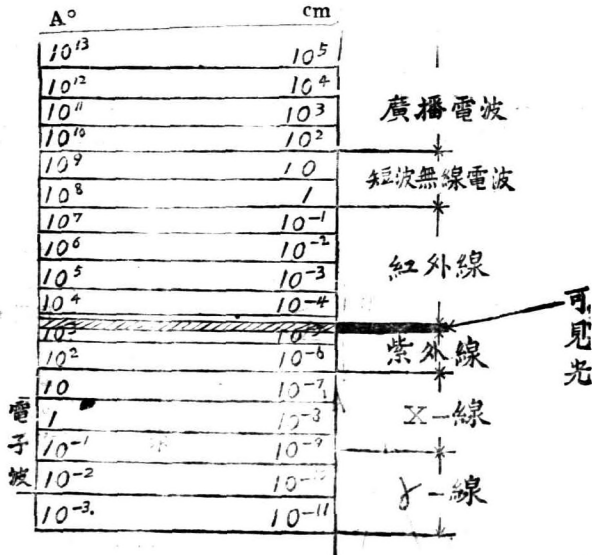 A° cm
10¹³ 10⁵
10¹² 10⁴
10¹¹ 10³
10¹⁰ 10²
10⁹ 10
10⁸ 1
10⁷ 10⁻¹
10⁶ 10⁻²
10⁵ 10⁻³
10⁴ 10⁻⁴
10³
10² 10⁻⁶
10 10⁻⁷
1 10⁻³
10⁻¹ 10⁻⁹
10⁻²
10⁻³ 10⁻¹¹
廣播電波
短波無線電波
紅外線
可見光
紫外線
X-線
γ-線
電子波